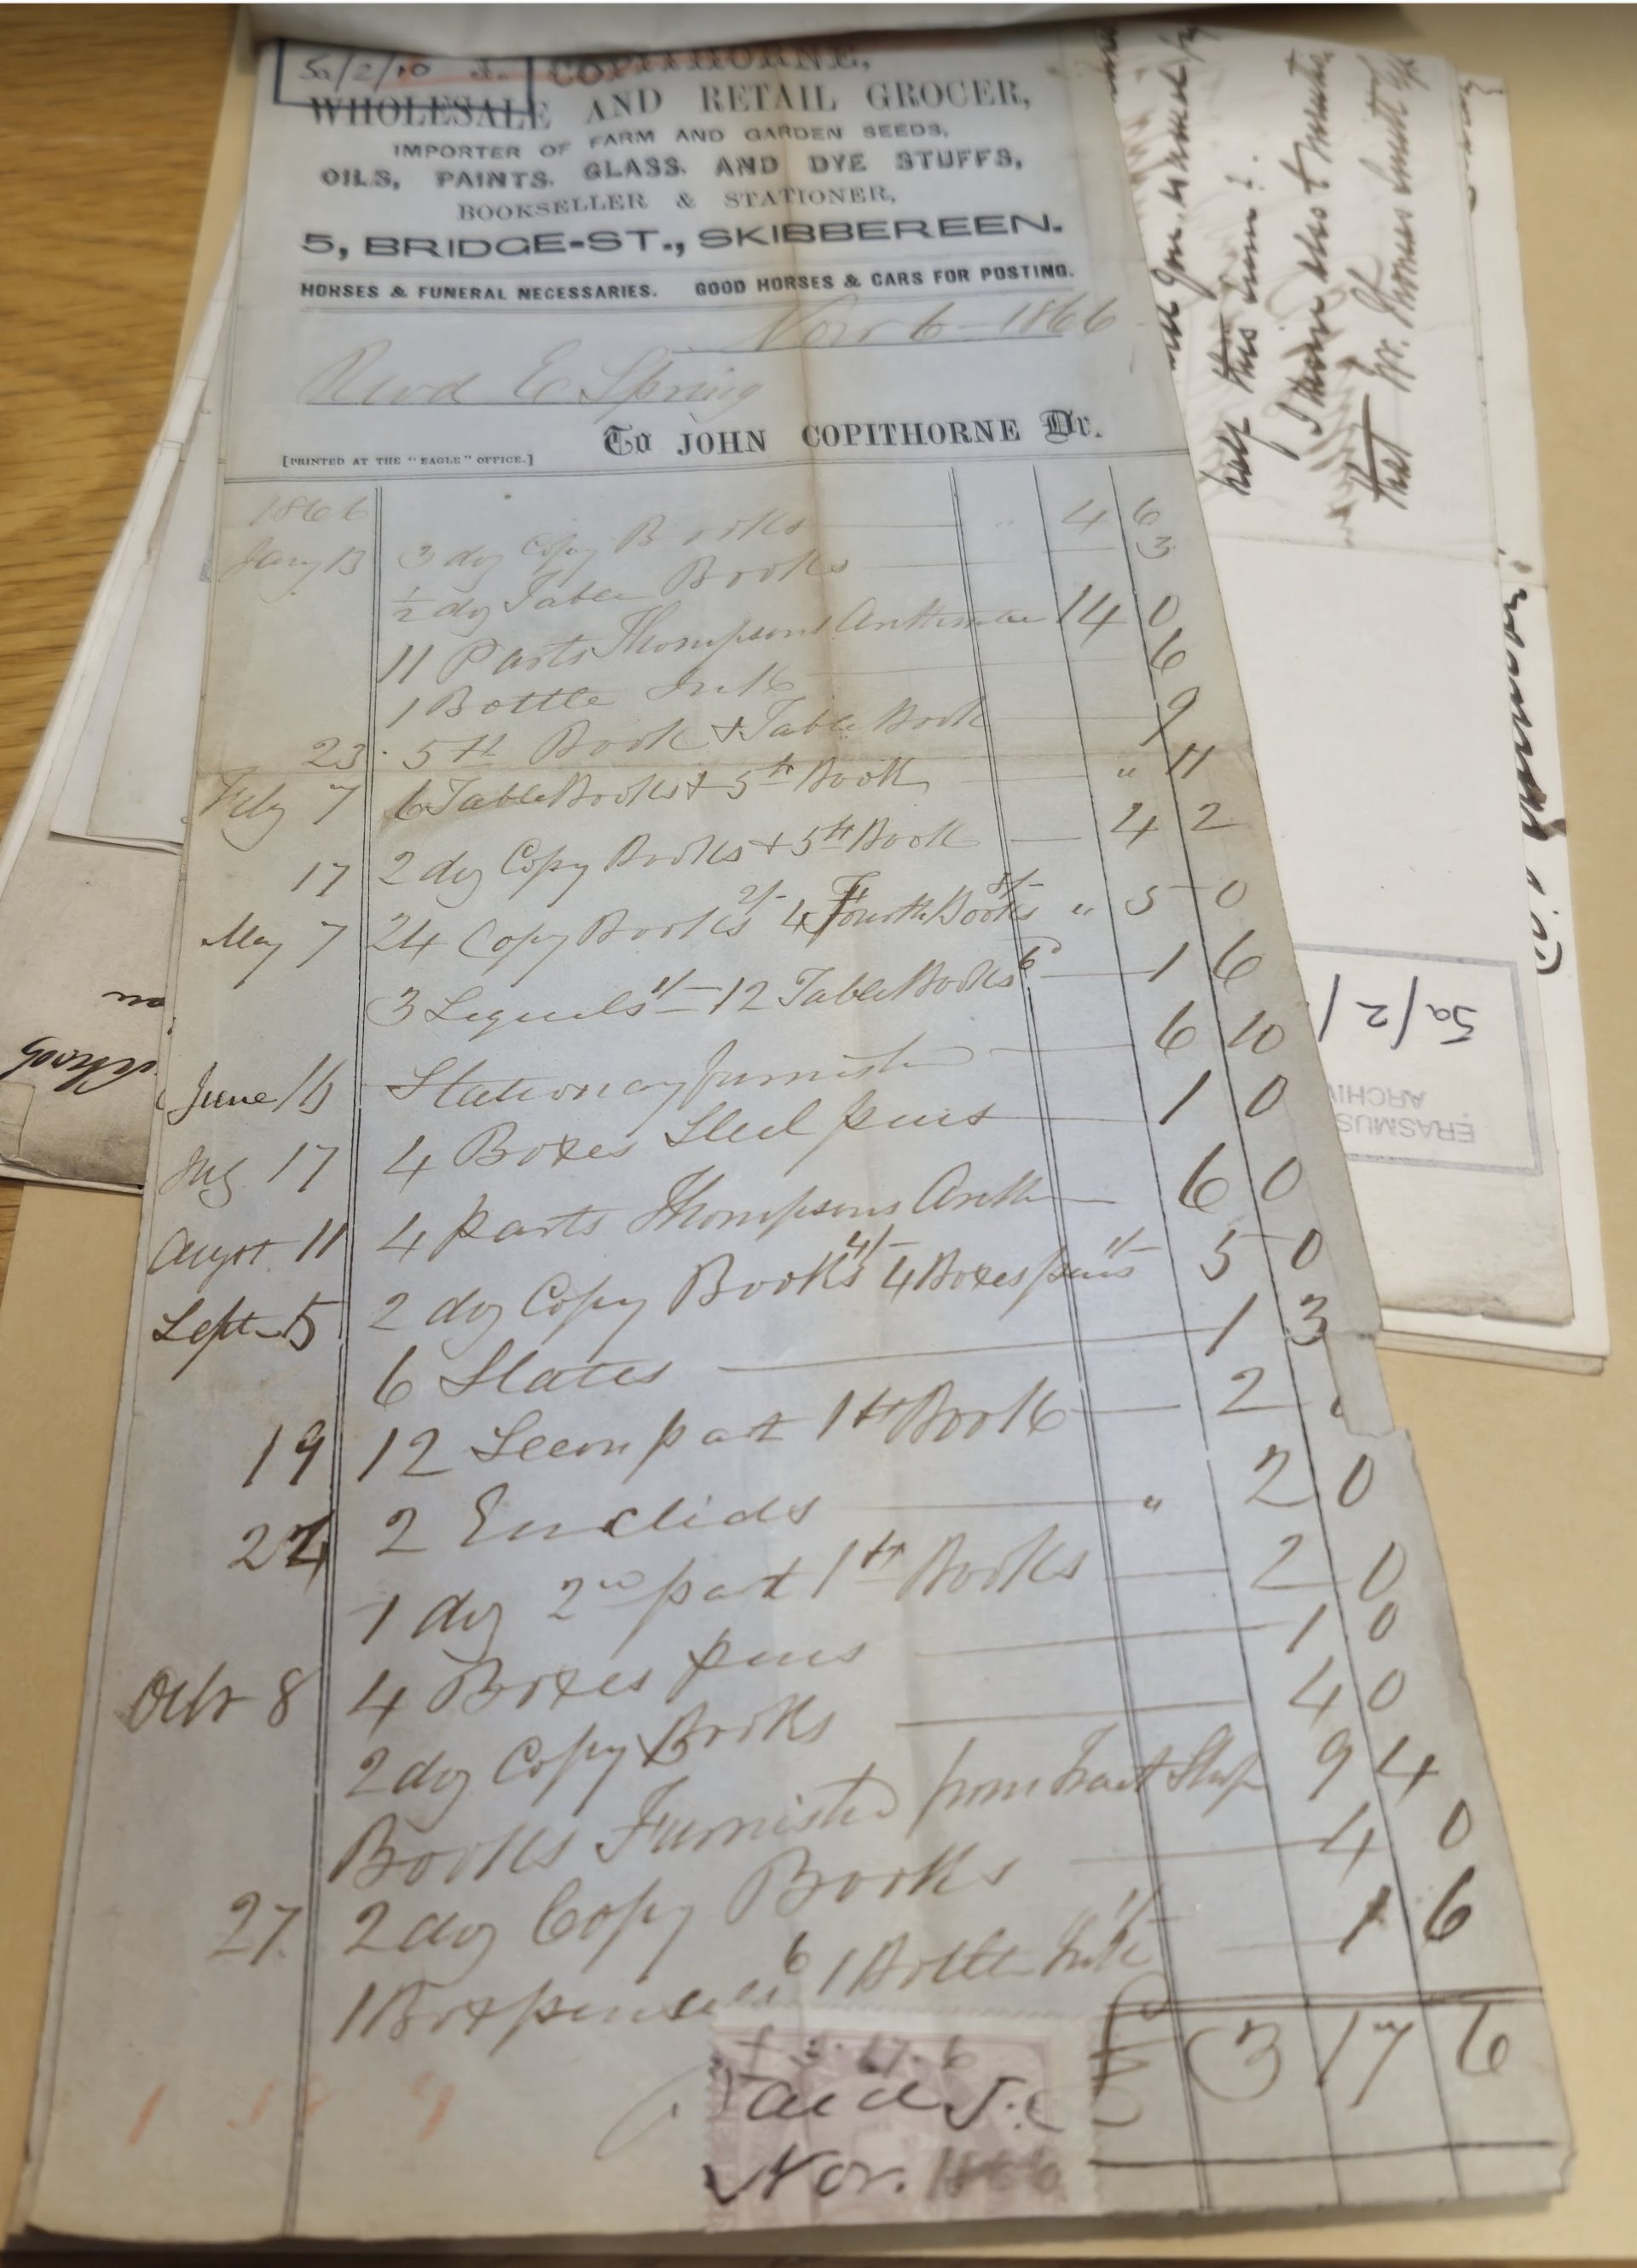 5a/2/10
COPITHORNE,
WHOLESALE AND RETAIL GROCER,
IMPORTER OF FARM AND GARDEN SEEDS,
OILS, PAINTS, GLASS, AND DYE STUFFS,
BOOKSELLER & STATIONER,
5, BRIDGE-ST., SKIBBEREEN.
HORSES & FUNERAL NECESSARIES. GOOD HORSES & CARS FOR POSTING.
Novr 6 1866
Revd E Spring
To JOHN COPITHORNE Dr.
[PRINTED AT THE "EAGLE" OFFICE.]
1866
Jany 13 3 doz Copy Books " 4 6
½ doz Table Books 3
11 Parts Thompsons Arithmetic 14 0
1 Bottle Ink 6
23 5th Book & Table Book 9
Feby 7 6 Table Books & 5th Book " 11
17 2 doz Copy Books & 5th Book 4 2
May 7 24 Copy Books 2/- 4 Fourth Books " 5 0
3 Sequels 1/- 12 Table Books 6 1 6
June 16 Stationary furnished 6 10
July 17 4 Boxes Steel pens 1 0
Augst 11 4 parts Thompsons Arith 6 0
Sept 5 2 doz Copy Books 4/- 4 Boxes pens 1/- 5 0
6 Slates 1 3
19 12 Secon part 1st Book 2
24 2 Euclids " 2 0
1 doz 2nd part 1st Books 2 0
Octr 8 4 Boxes pens 1 0
2 doz Copy Books 4 0
Books Furnished from 9 4
27 2 doz Copy Books 4 0
1 Box 6 1 Bottle Ink 1/- 1 6
£ 3 17 6
£3.17.6
Paid J.C
Nov. 1866
half this sum?
I think also
that Mr. Thomas
5a/2/
ARCHIV
ERASMUS